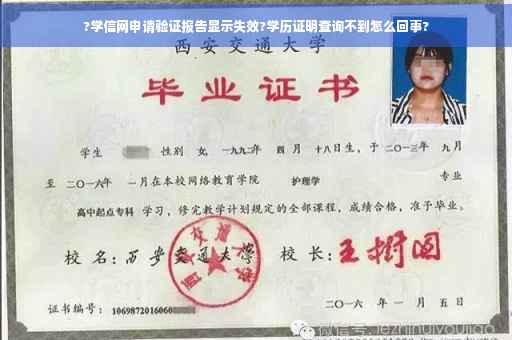 ?学信网申请验证报告显示失效?学历证明查询不到怎么回事?
西安交通大学
毕业证书
学生 性别 女, 一九九二年 四月 十八日生, 于 二〇一三年 九月
至 二〇一六年 一月在本校网络教育学院 护理学 专业
高中起点专科 学习, 修完教学计划规定的全部课程, 成绩合格, 准予毕业。
校名: 西安交通大学 校长: 王树国
西安交通大学
证书编号: 1069872016060
二〇一六年 一月 五日
微信号: jezhihuiyoujiao